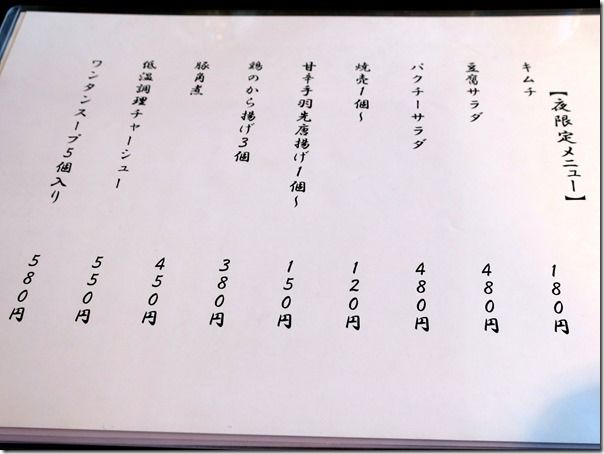 【夜限定メニュー】
キムチ 180円
豆腐サラダ 480円
パクチーサラダ 480円
焼売1個～ 120円
甘辛手羽先唐揚げ1個～ 150円
鶏のから揚げ3個 380円
豚角煮 450円
低温調理チャーシュー 550円
ワンタンスープ5個入り 580円